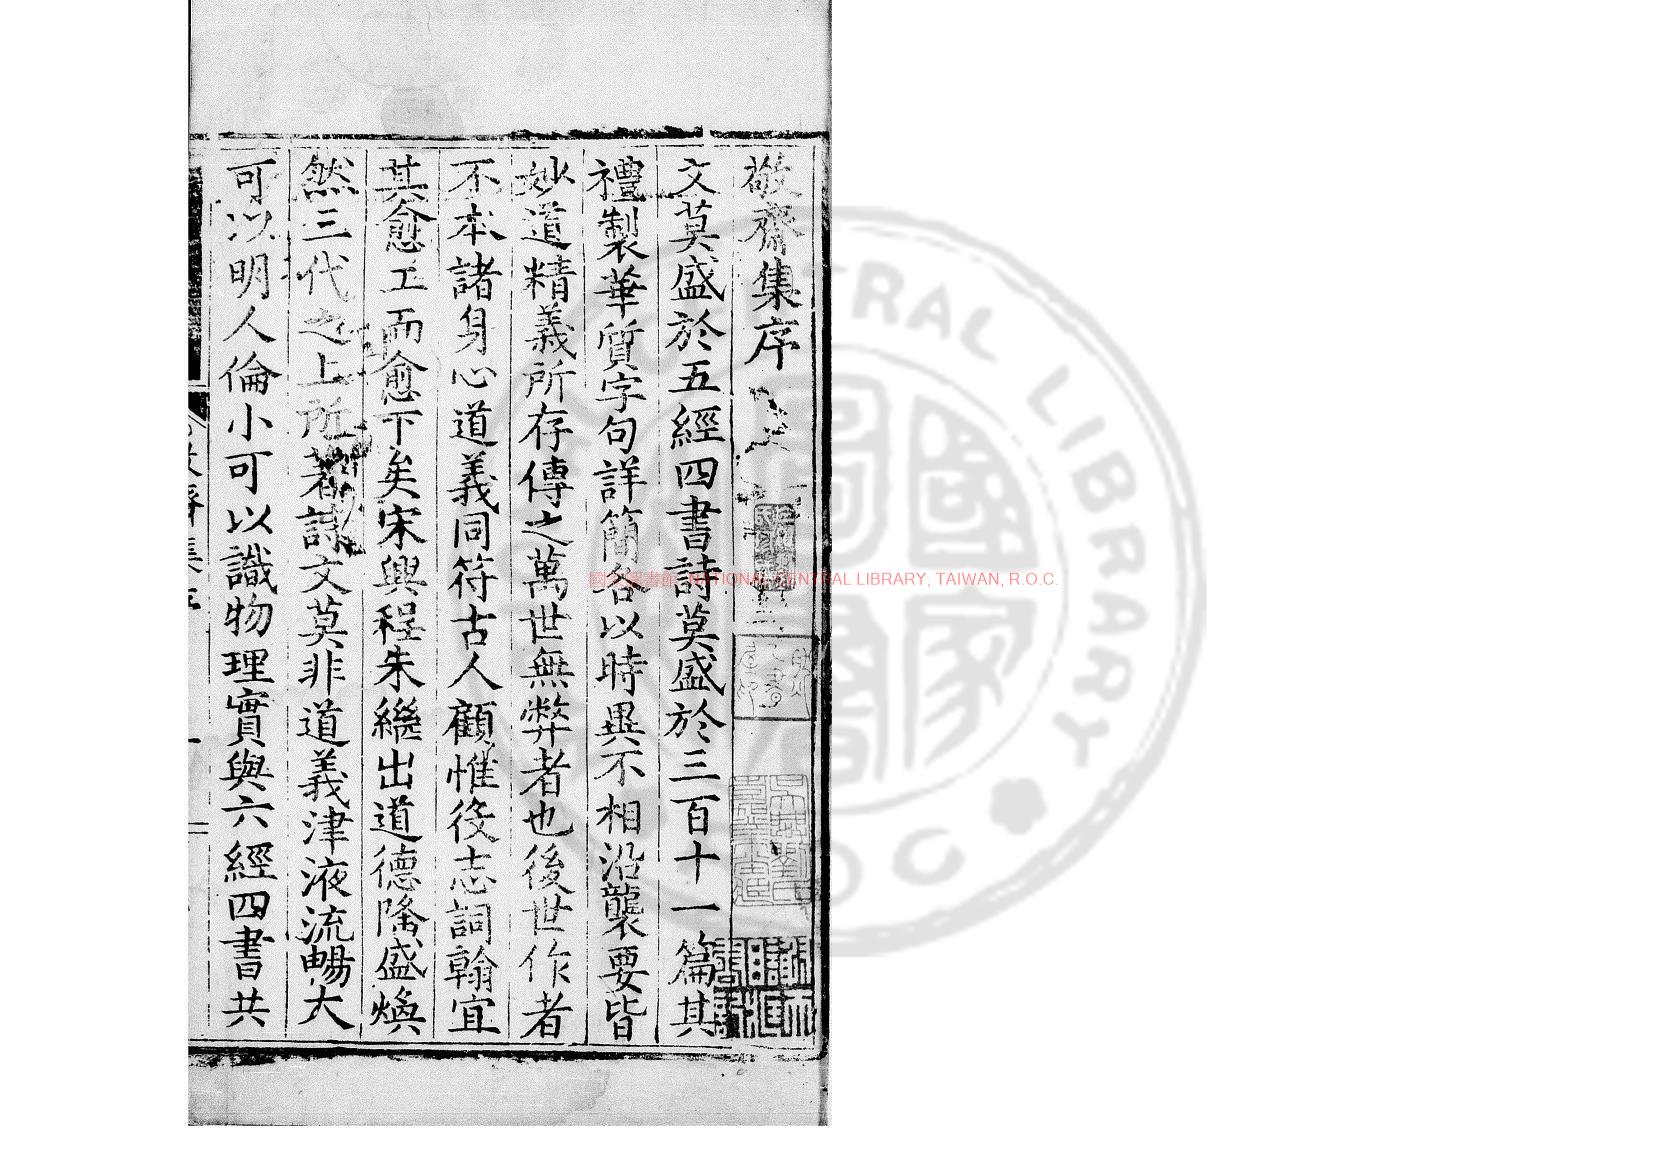 敬齋集序
文莫盛於五經四書詩莫盛於三百十一篇其
禮製華質字句詳簡各以時異不相沿襲要皆
妙道精義所存傳之萬世無弊者也後世作者
不本諸身心道義同符古人顧惟役志詞翰宜
其愈工而愈下矣宋興程朱繼出道德隆盛煥
然三代之上所著詩文莫非道義津液流暢大
可以明人倫小可以識物理實與六經四書共
國家圖書館 NATIONAL CENTRAL LIBRARY, TAIWAN, R.O.C.